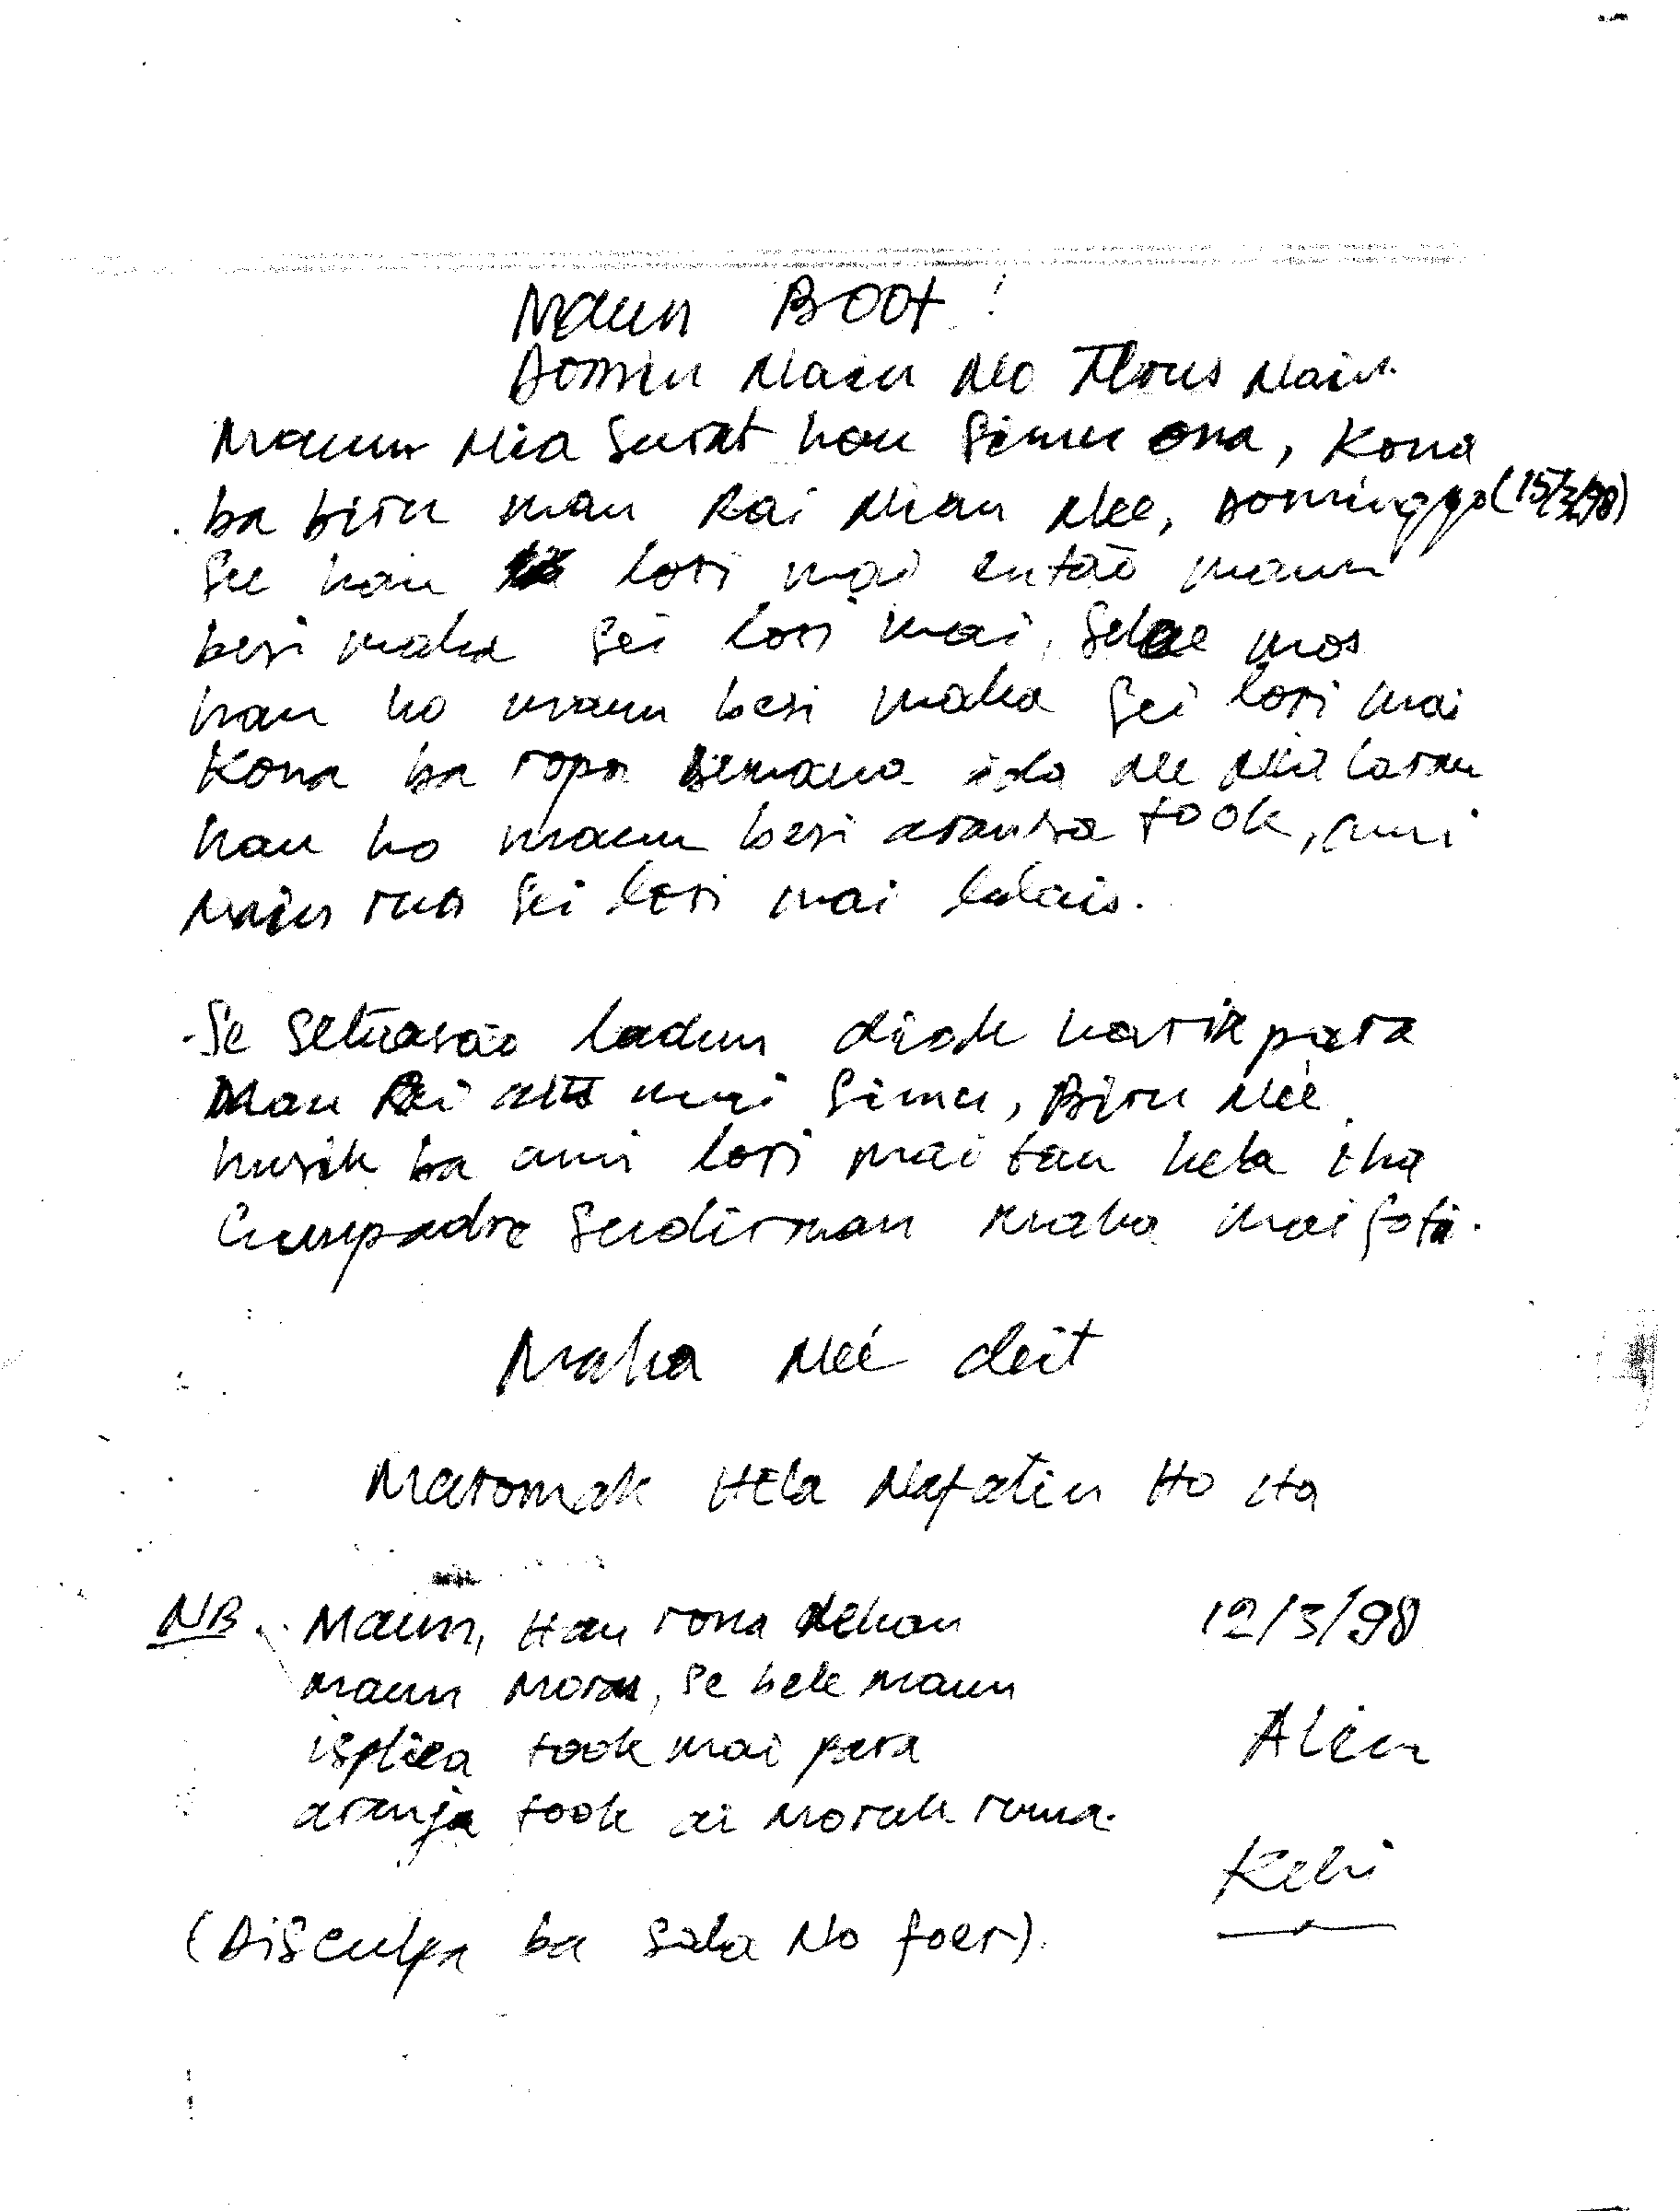 Maun Boot!
Domin Nain No Flous Nain.
Maun Nia Surat hau Simu ona, Kona
ba biru man Rai Nian Nee, Dominggo (15/3/98)
See hau lori mai então maun
besi maka sei lori mai, Selae mos
hau ho maun besi maka sei lori mai
Kona ba ropa semana ida ne Nia laran
hau ho maun besi aranha took, ami
Nain rua sei lori mai lalais.
-Se setuasão ladun diak karik para
Mau Rai mai Simu, Biru Neé
husik ba ami lori mai tau hela iha
Cumpadre Sudirman maka mai foti.
Maka Neé deit
Maromak Hela Nafatin Ho Ita
NB. Maun, Hau rona dehan 12/3/98
maun Moras, se bele maun
isplica took mai para Alin
aranja took ai Moruk ruma.
Keli
(Disculpa ba sala No foer).